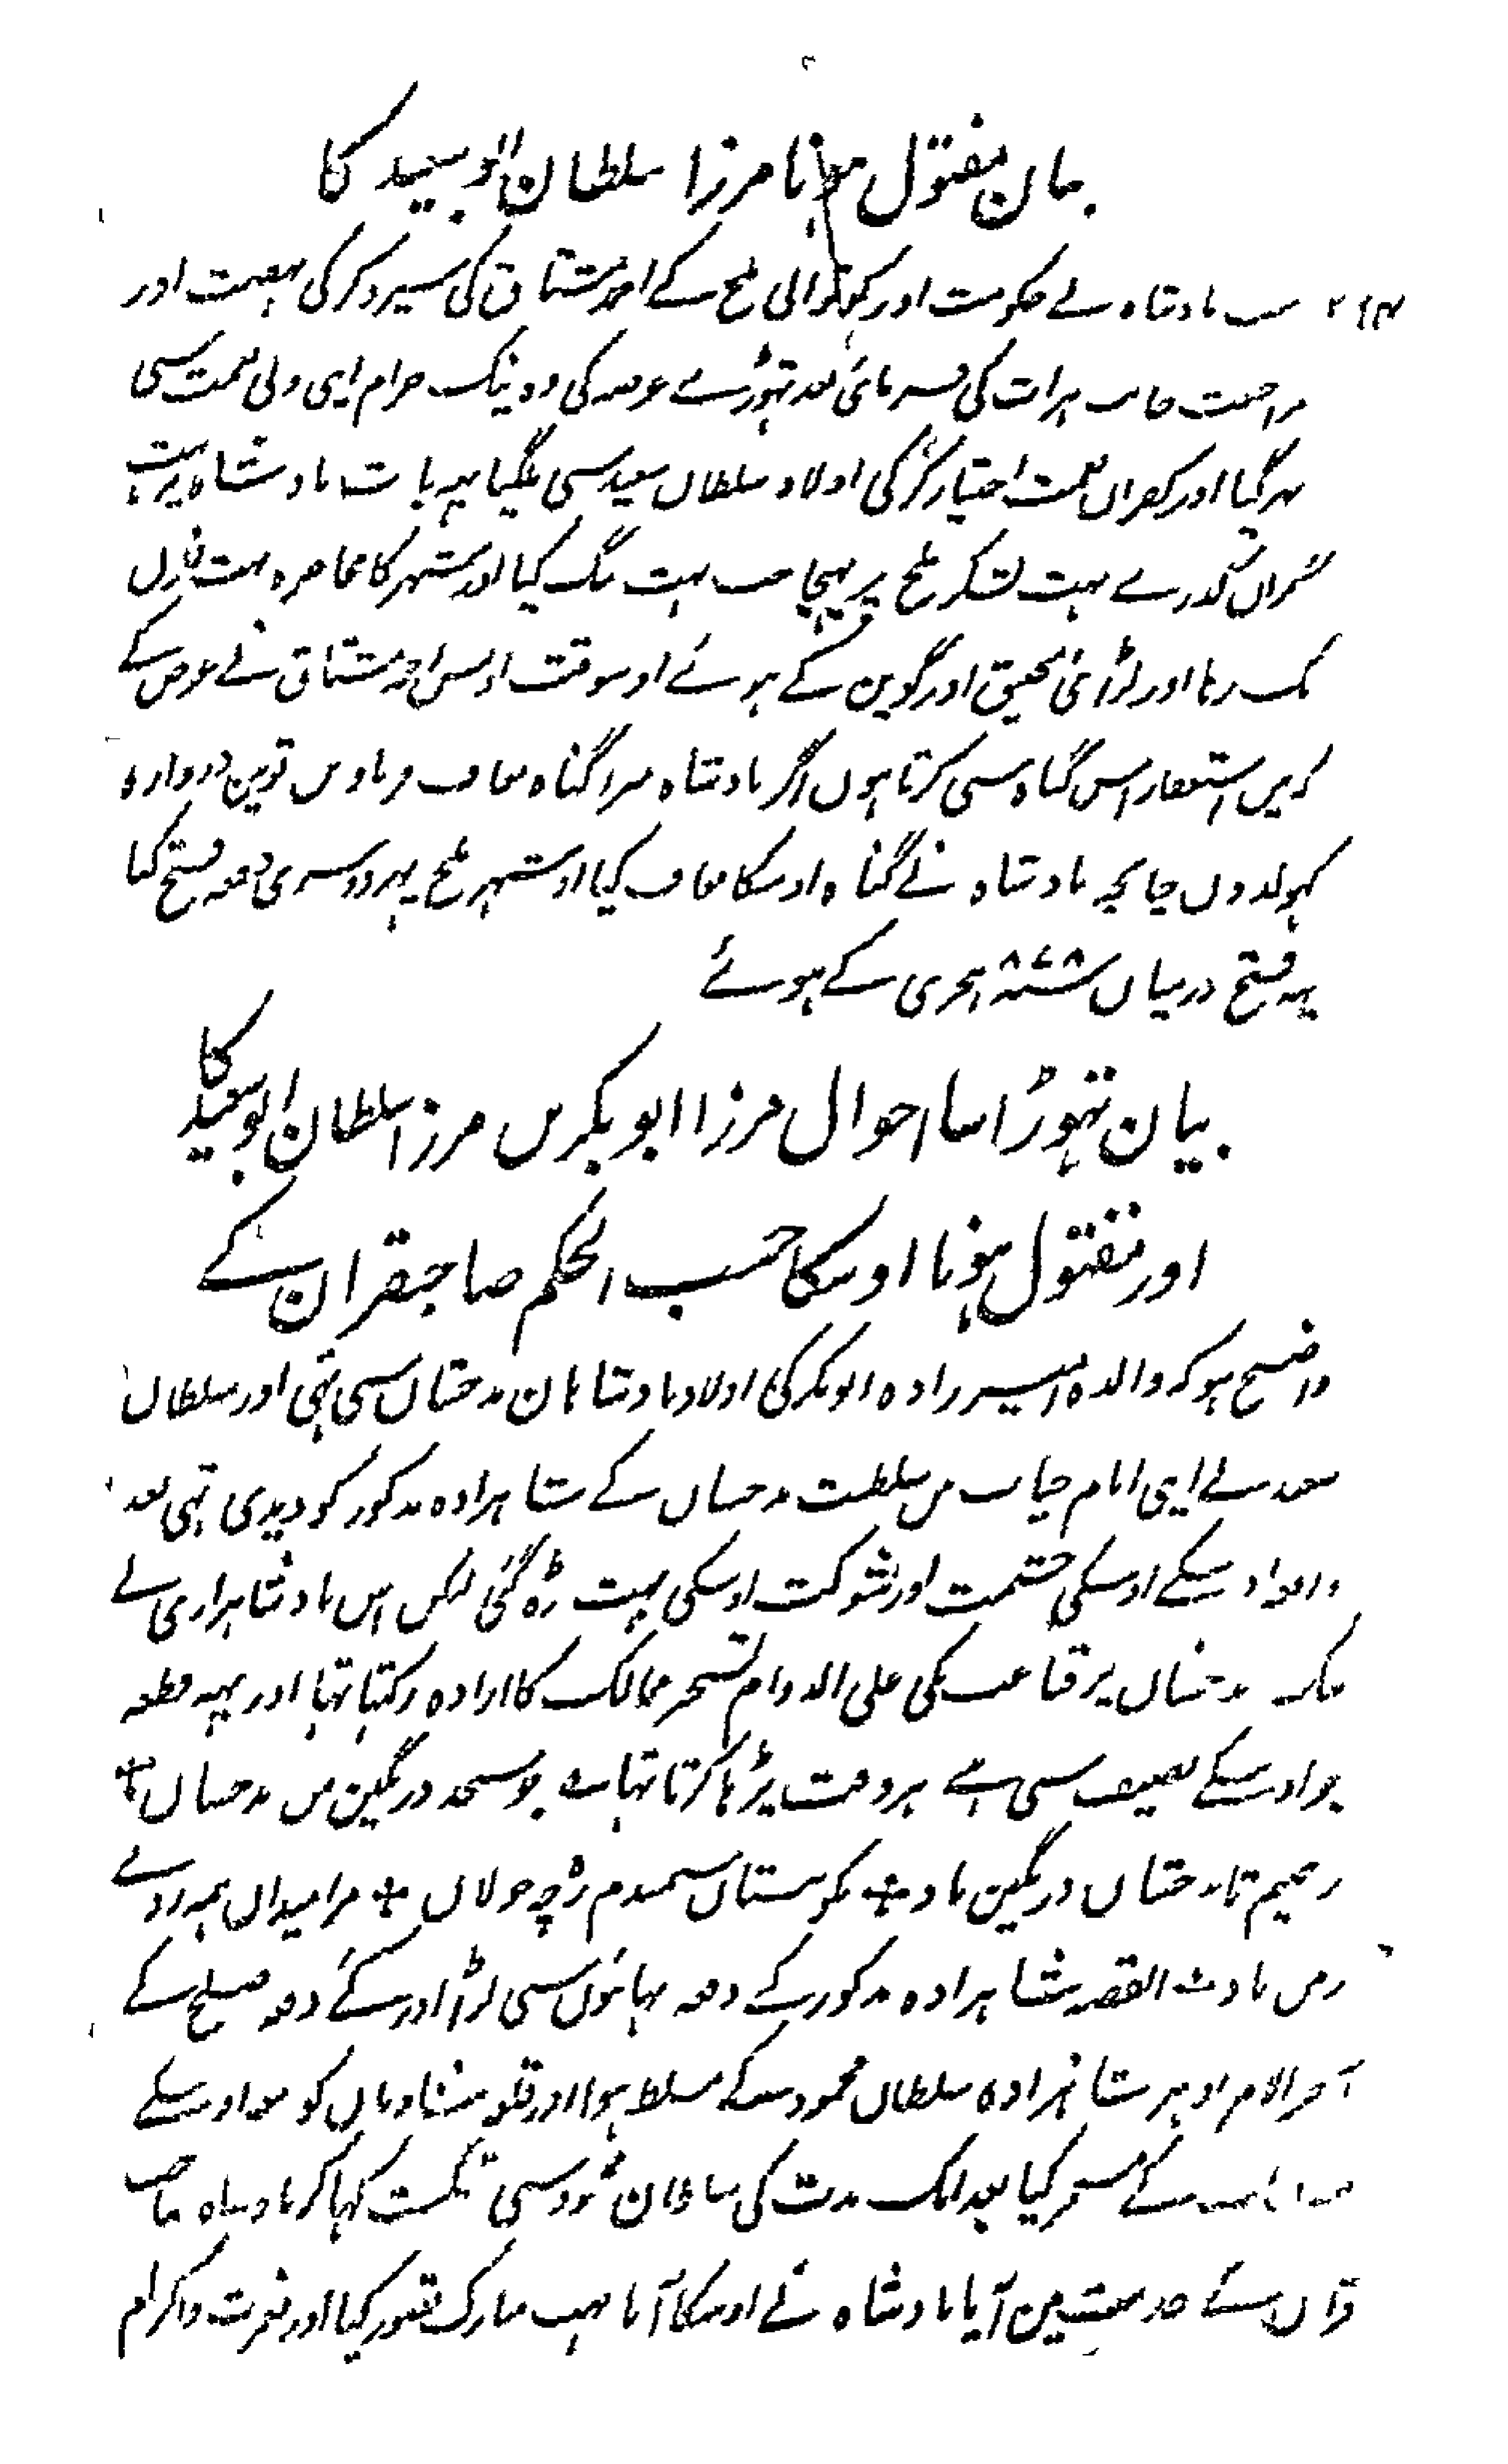 بیان مقتول ہونا مرزا سلطان ابو سعید کا
جب بادشاہ نے حکومت اور کوتوالی بلخ کے احمد مشتاق کی سپرد کر کی بیعت اور
مراجعت جانب ہرات کی فرمائی بعد تہوڑے عرصہ کی وہ نمک حرام اپی ولی نعمت سی
پہر گیا اور کفران نعمت اختیار کر کی اولاد سلطان سعید سی ملگیا یہہ بات بادشاہ پر بہت
گراں گذرے بہت لشکر بلخ پر بہیجا جب بہت تنگ کیا اور شہر کا محاصرہ بہت دنوں
تک رہا اور لڑائی منجنیق اور گوپن کے ہوئے اوسوقت اوس احمد مشتاق نے عرض کے
کہ میں استغفار اس گناہ سی کرتا ہوں اگر بادشاہ میرا گناہ معاف فرماویں تو میں دروازہ
کہولدوں چنانچہ بادشاہ نے گناہ اوسکا معاف کیا اور شہر بلخ پہر دوسری دفعہ فتح کیا
یہہ فتح درمیاں سنہ ۸۷۸ ہجری کے ہوئے
بیان تہوڑا سا احوال مرزا ابو بکر بن مرزا سلطان ابو سعید کا
اور مقتول ہونا اوسکا حسب الحکم صاحبقران کے
واضح ہو کہ والدہ امیر زادہ ابوبکر کی اولاد بادشاہان بدخشاں سی تہی اور سلطان
سعید نے اپی ایام حیات میں سلطنت بدخشاں کے شاہزادہ مذکور کو دیدی تہی بعد
اوسکے اوسکی حشمت اور شوکت اوسکی بہت بڑہ گئی لیکن اس بادشاہزادی نے
ملک بدخشاں پر قناعت نکی علی الدوام تسخیر ممالک کا ارادہ رکہتا تہا اور یہہ قطعہ
جو اوسکے تصنیف سی ہے ہر وقت پڑہا کرتا تہا چو سنجد در نگین من بدخشاں
تا بدخشاں در نگین باد بکوہستاں سمندم را چہ جولاں مرا میداں
زمین باد القصہ شاہزادہ مذکور کے دفعہ بہائیوں سی لڑا اور کئے دفعہ صلح کے
آخر الامر اوپر شاہزادہ سلطان محمود کے مسلط ہوا اور قلعہ شادمان کو معہ اوسکے
کے مسخر کیا بعد ایک مدت کی سلطان محمود سی شکست کہا کر بادشاہ صاحب
قران کے خدمت میں آیا بادشاہ نے اوسکا آنا بہت مبارک تصور کیا اور عزت و اکرام